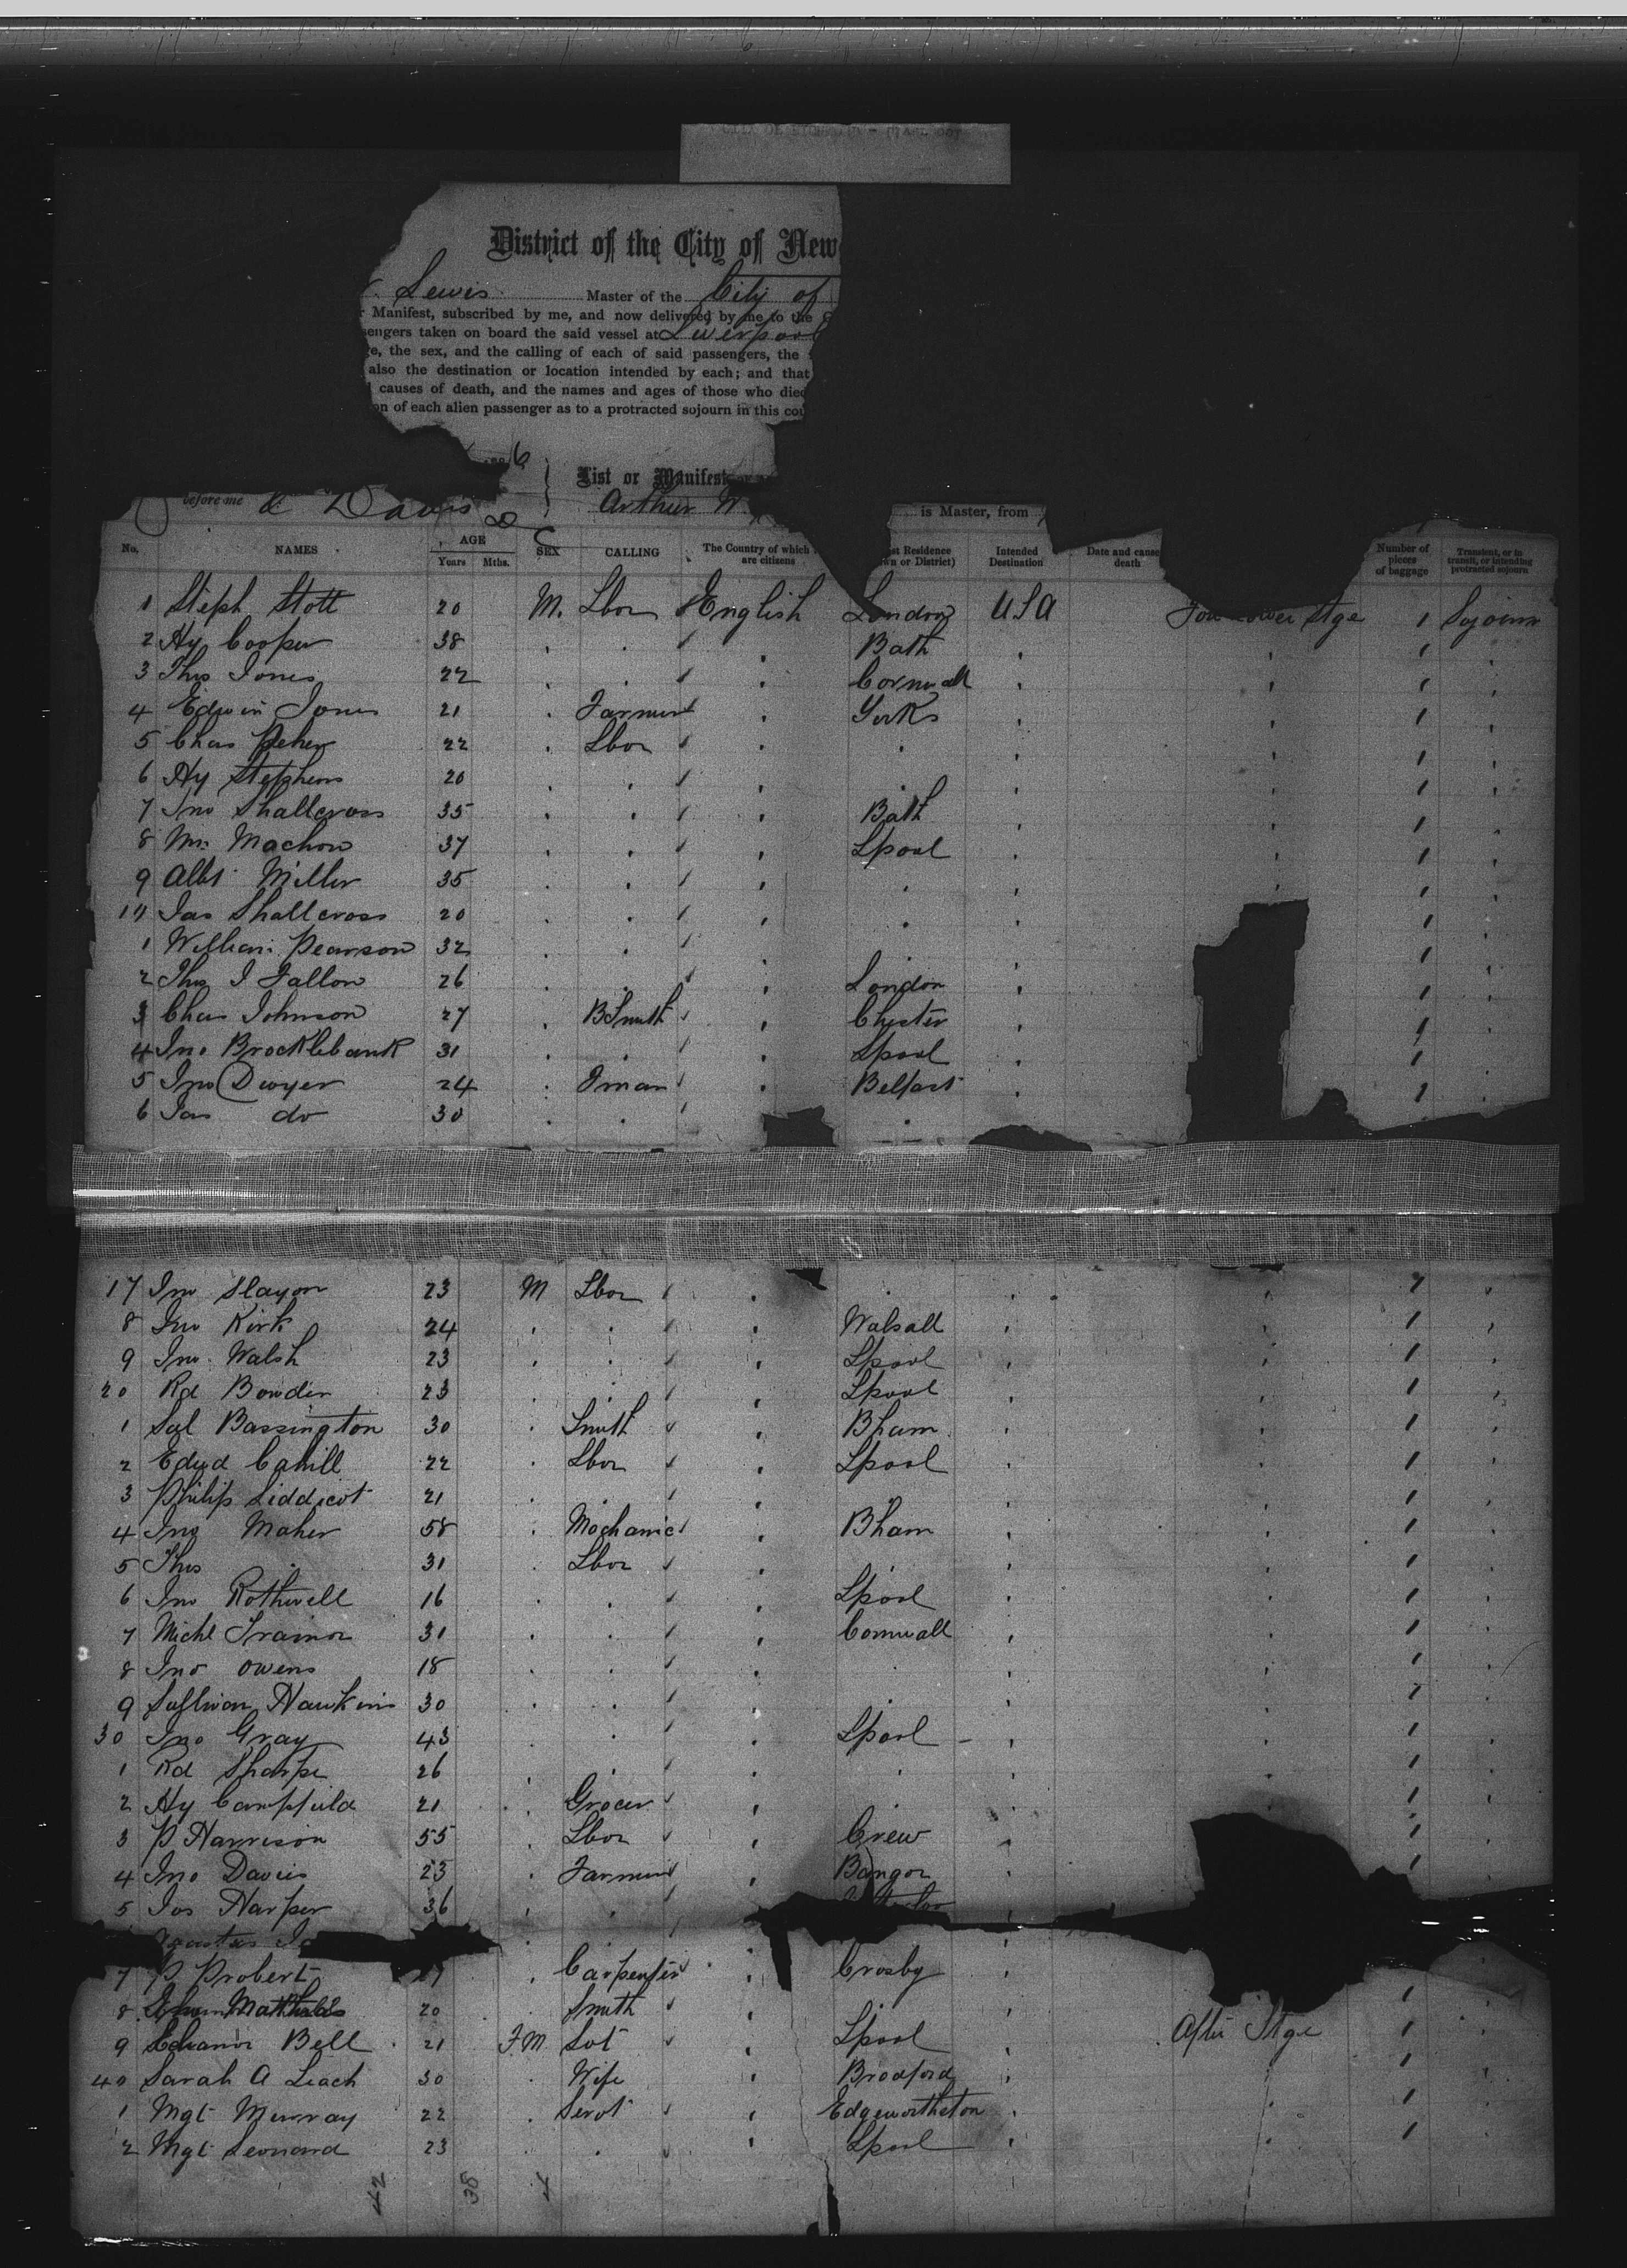 District of the City of New
Lewis Master of the City of
Manifest, subscribed by me, and now delivered by me to the
sengers taken on board the said vessel at Liverpool
e, the sex, and the calling of each of said passengers, the
also the destination or location intended by each; and that
causes of death, and the names and ages of those who died
on of each alien passenger as to a protracted sojourn in this cou
6
List or Manifest
before me Davis Arthur W. is Master, from
No. NAMES AGE Years Mths. SEX CALLING The Country of which are citizens st Residence wn or District) Intended Destination Date and cause death Number of pieces of baggage Transient, or in transit, or intending protracted sojourn
1 Steph Stott 20 M. Lbor English London USA Stge 1 Sojourn
2 Hy Cooper 38 Bath 1
3 Thos Jones 22 Cornwall 1
4 Edwin Jones 21 Farmer Yorks 1
5 Chas 22 Lbor 1
6 Hy Stephens 20 1
7 Jno Shallcross 35 Bath 1
8 Wm Machow 37 Lpool 1
9 Albt Miller 35 1
10 Jas Shallcross 20 1
1 William Pearson 32 1
2 Thos J Fallon 26 London 1
3 Chas Johnson 27 BSmith Chester 1
4 Jno Brocklebank 31 Lpool 1
5 Jno Dwyer 24 Fman Belfast 1
6 Jas do 30
17 Jno Slayon 23 M Lbor 1
8 Jno Kirk 24 Walsall 1
9 Jno Walsh 23 Lpool 1
20 Rd Bowden 23 Lpool 1
1 Sal Bassington 30 Smith Bham 1
2 Edwd Cahill 22 Lbor Lpool 1
3 Philip Liddicot 21 1
4 Jno Maher 58 Mechanic Bham 1
5 Thos 31 Lbor 1
6 Jno Rothwell 16 Lpool 1
7 Michl Trainor 31 Cornwall 1
8 Jno Owens 18 1
9 Sullivan Hawkins 30 1
30 Jno Gray 43 Lpool 1
1 Rd Sharpe 26 1
2 Hy Campfield 21 Grocer 1
3 P Harrison 55 Lbor Crew 1
4 Jno Davies 23 Farmer Bangor 1
5 Jos Harper 36
7 P Probert Carpenter Crosby
8 20 Smith 1
9 Bell 21 FM Lpool After Stge 1
40 Sarah A Leach 30 Wife Bradford 1
1 Mgt Murray 22 Servt 1
2 Mgt Leonard 23 Lpool 1
42 38 4